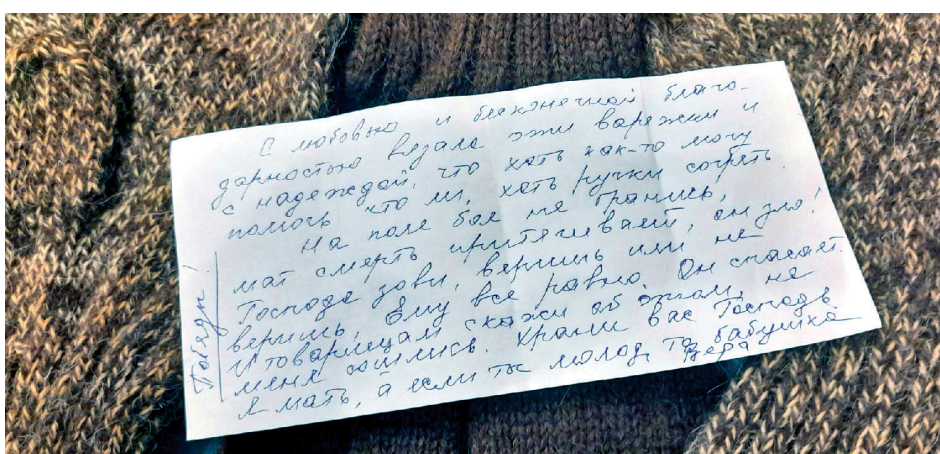 С любовью и бесконечной благо-
дарностью вязала эти варежки и
с надеждой, что хоть как-то могу
помочь что ли, хоть ручки согреть.
На поле боя не бранись,
мат смерть притягивает, он зло!
Господа зови, веришь или не
веришь, Ему всё равно. Он спасает.
И товарищам скажи об этом, на
меня сошлись. Храни вас Господь
Я мать, а если ты молод, то бабушка
Вера
Победы!